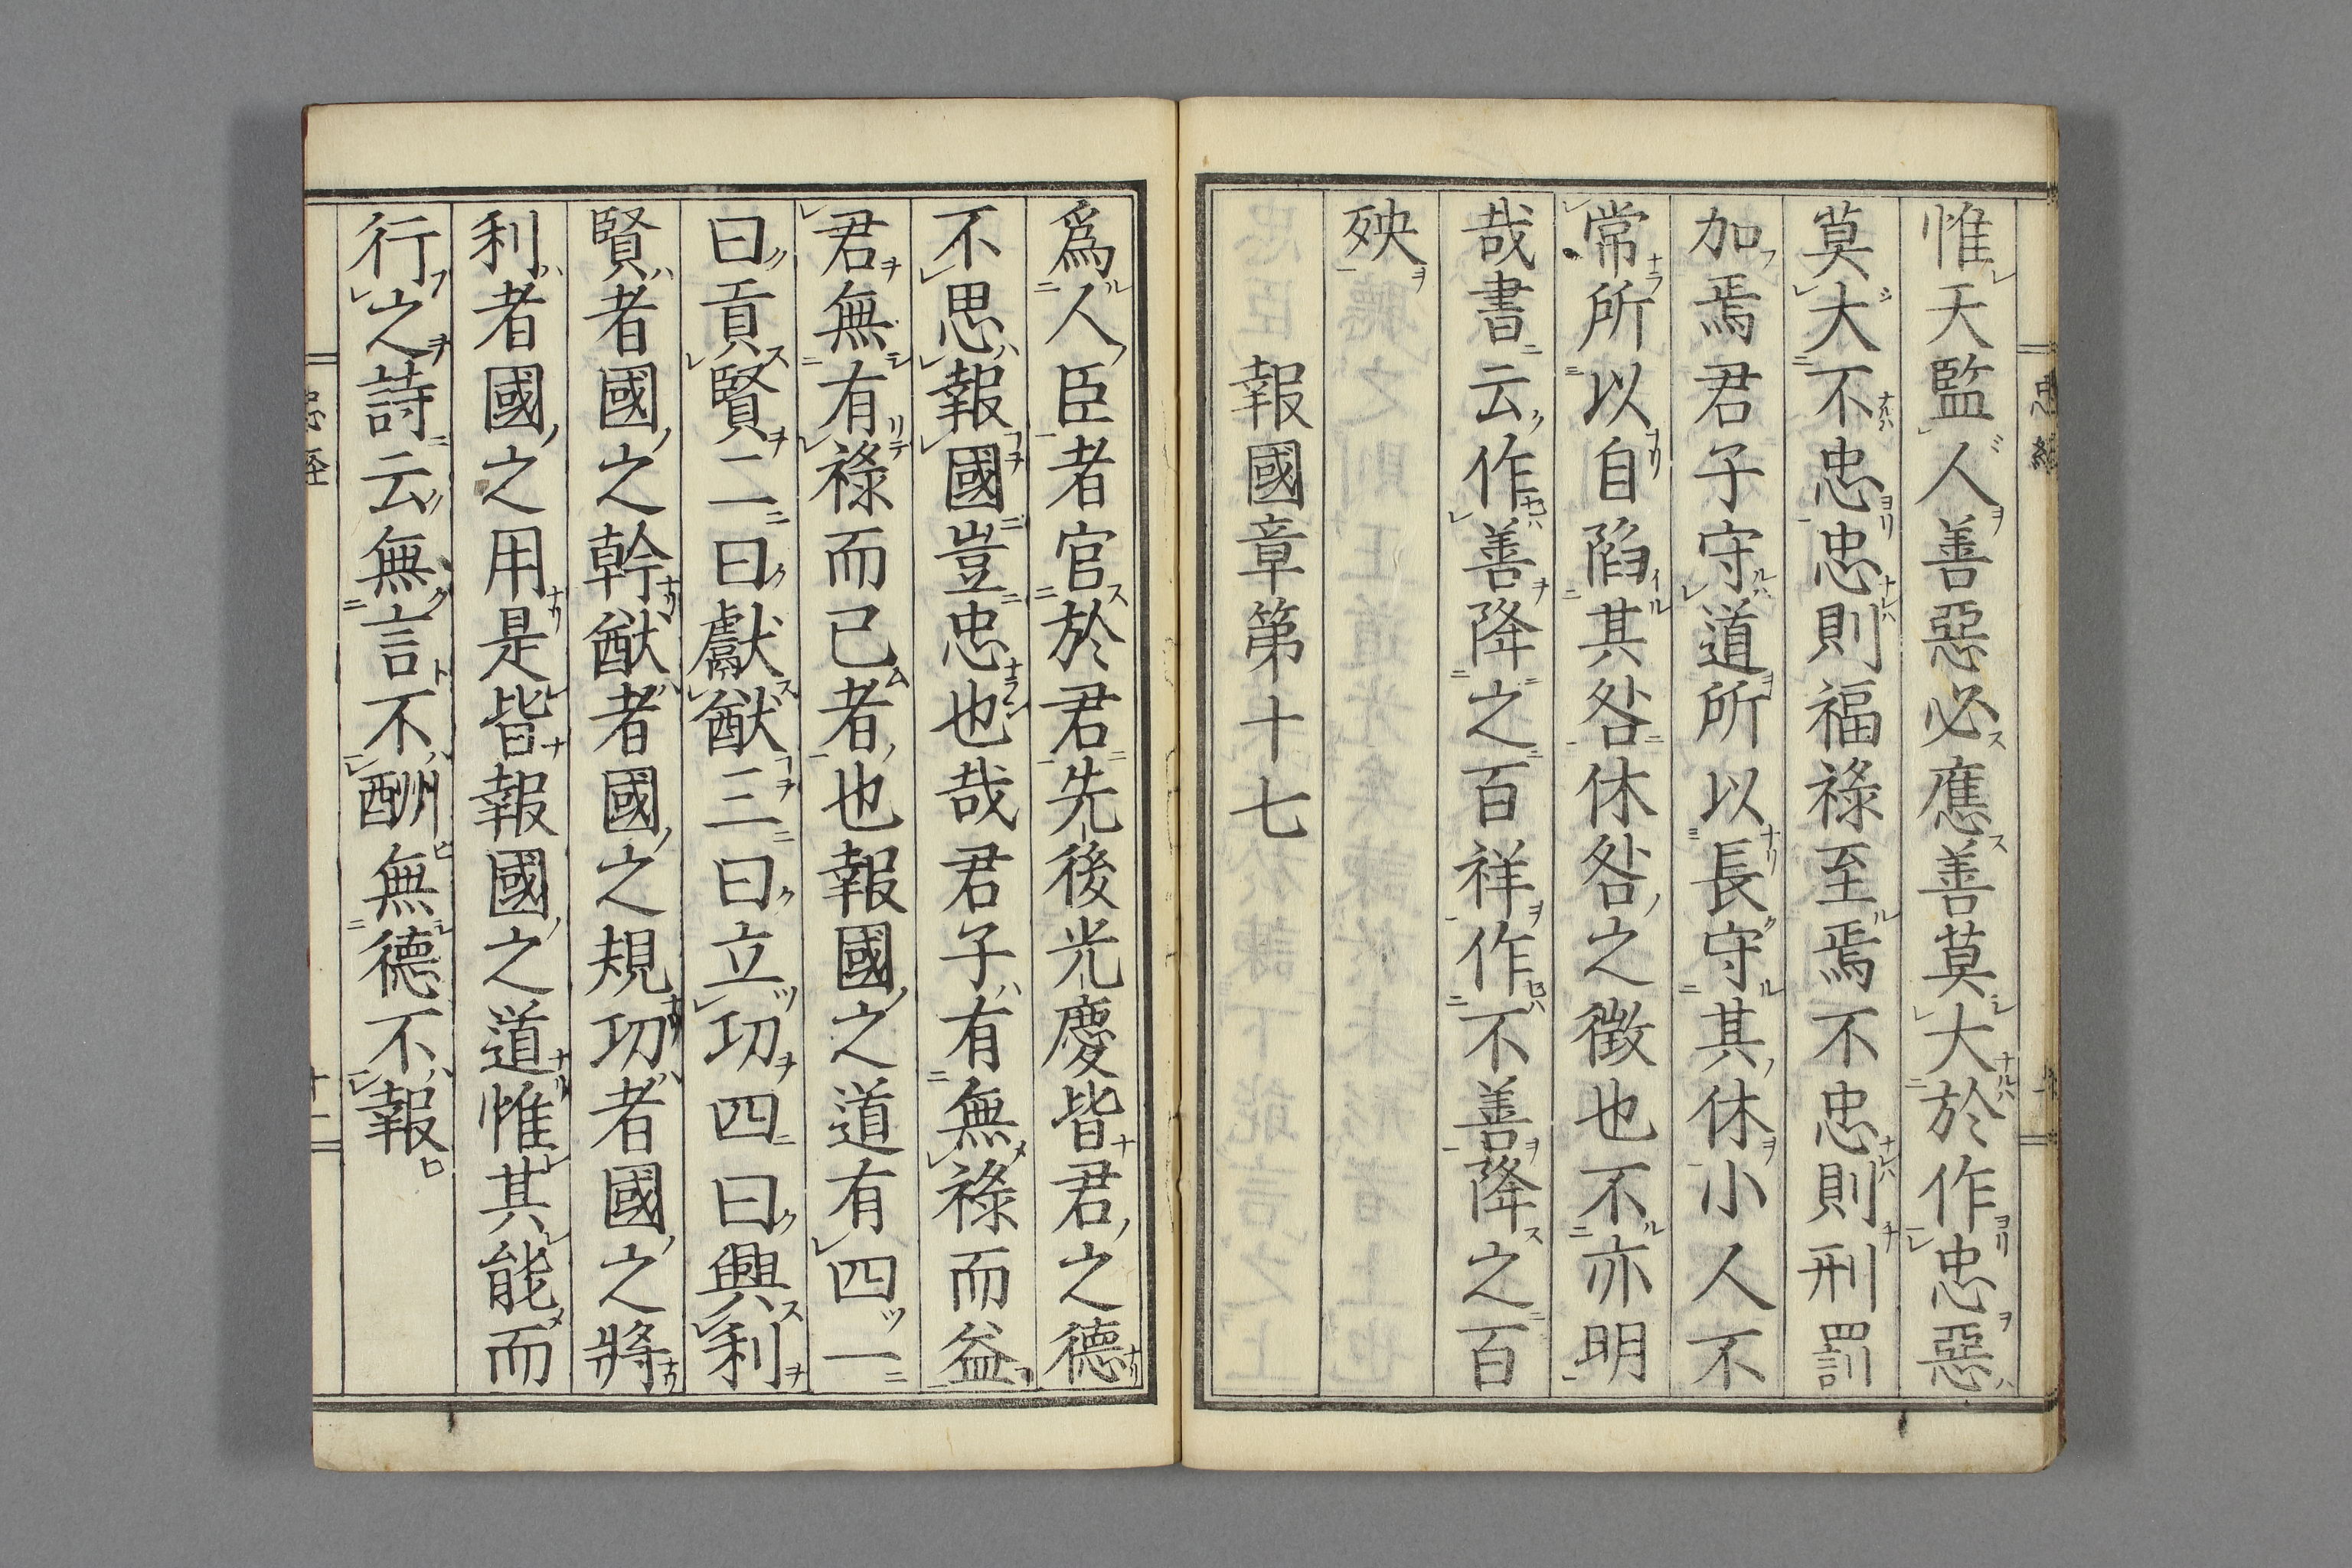 惟天監人善惡必應善莫大於作忠惡
莫大不忠忠則福祿至焉不忠則刑罰
加焉君子守道所以長守其休小人不
常所以自陷其咎休咎之徴也不亦明
哉書云作善降之百祥作不善降之百
殃
報國章第十七
爲人臣者官於君先後光慶皆君之德
不思報國豈忠也哉君子有無祿而益
君無有祿而已者也報國之道有四一
曰貢賢二曰獻猷三曰立功四曰興利
賢者國之幹猷者國之規功者國之將
利者國之用是皆報國之道惟其能而
行之詩云無言不酬無德不報